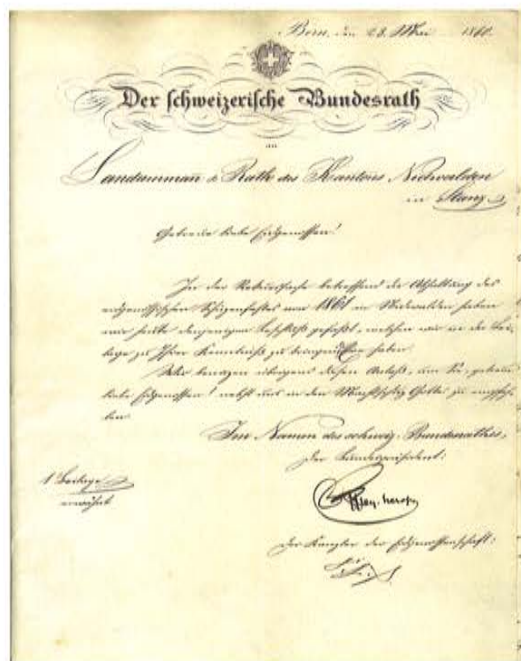 Bern, den 23. Mai 1860.
Der schweizerische Bundesrath
an
Landammann & Rath des Kantons Nidwalden
in Stanz
Getreue liebe Eidgenossen!
In der Rekurssache betreffend die Abhaltung des
eidgenössischen Schützenfestes von 1861 in Nidwalden haben
wir heute denjenigen Beschluß gefaßt, welchen wir in der Bei-
lage zu Ihrer Kenntniß zu bringen haben.
Wir benuzen übrigens diesen Anlaß, um Sie, getreue
liebe Eidgenossen! nebst uns in den Machtschutz Gottes zu empfeh-
len.
Im Namen des schweiz. Bundesrathes,
Der Bundespräsident:
1 Beilage
erwähnt
Der Kanzler der Eidgenossenschaft: